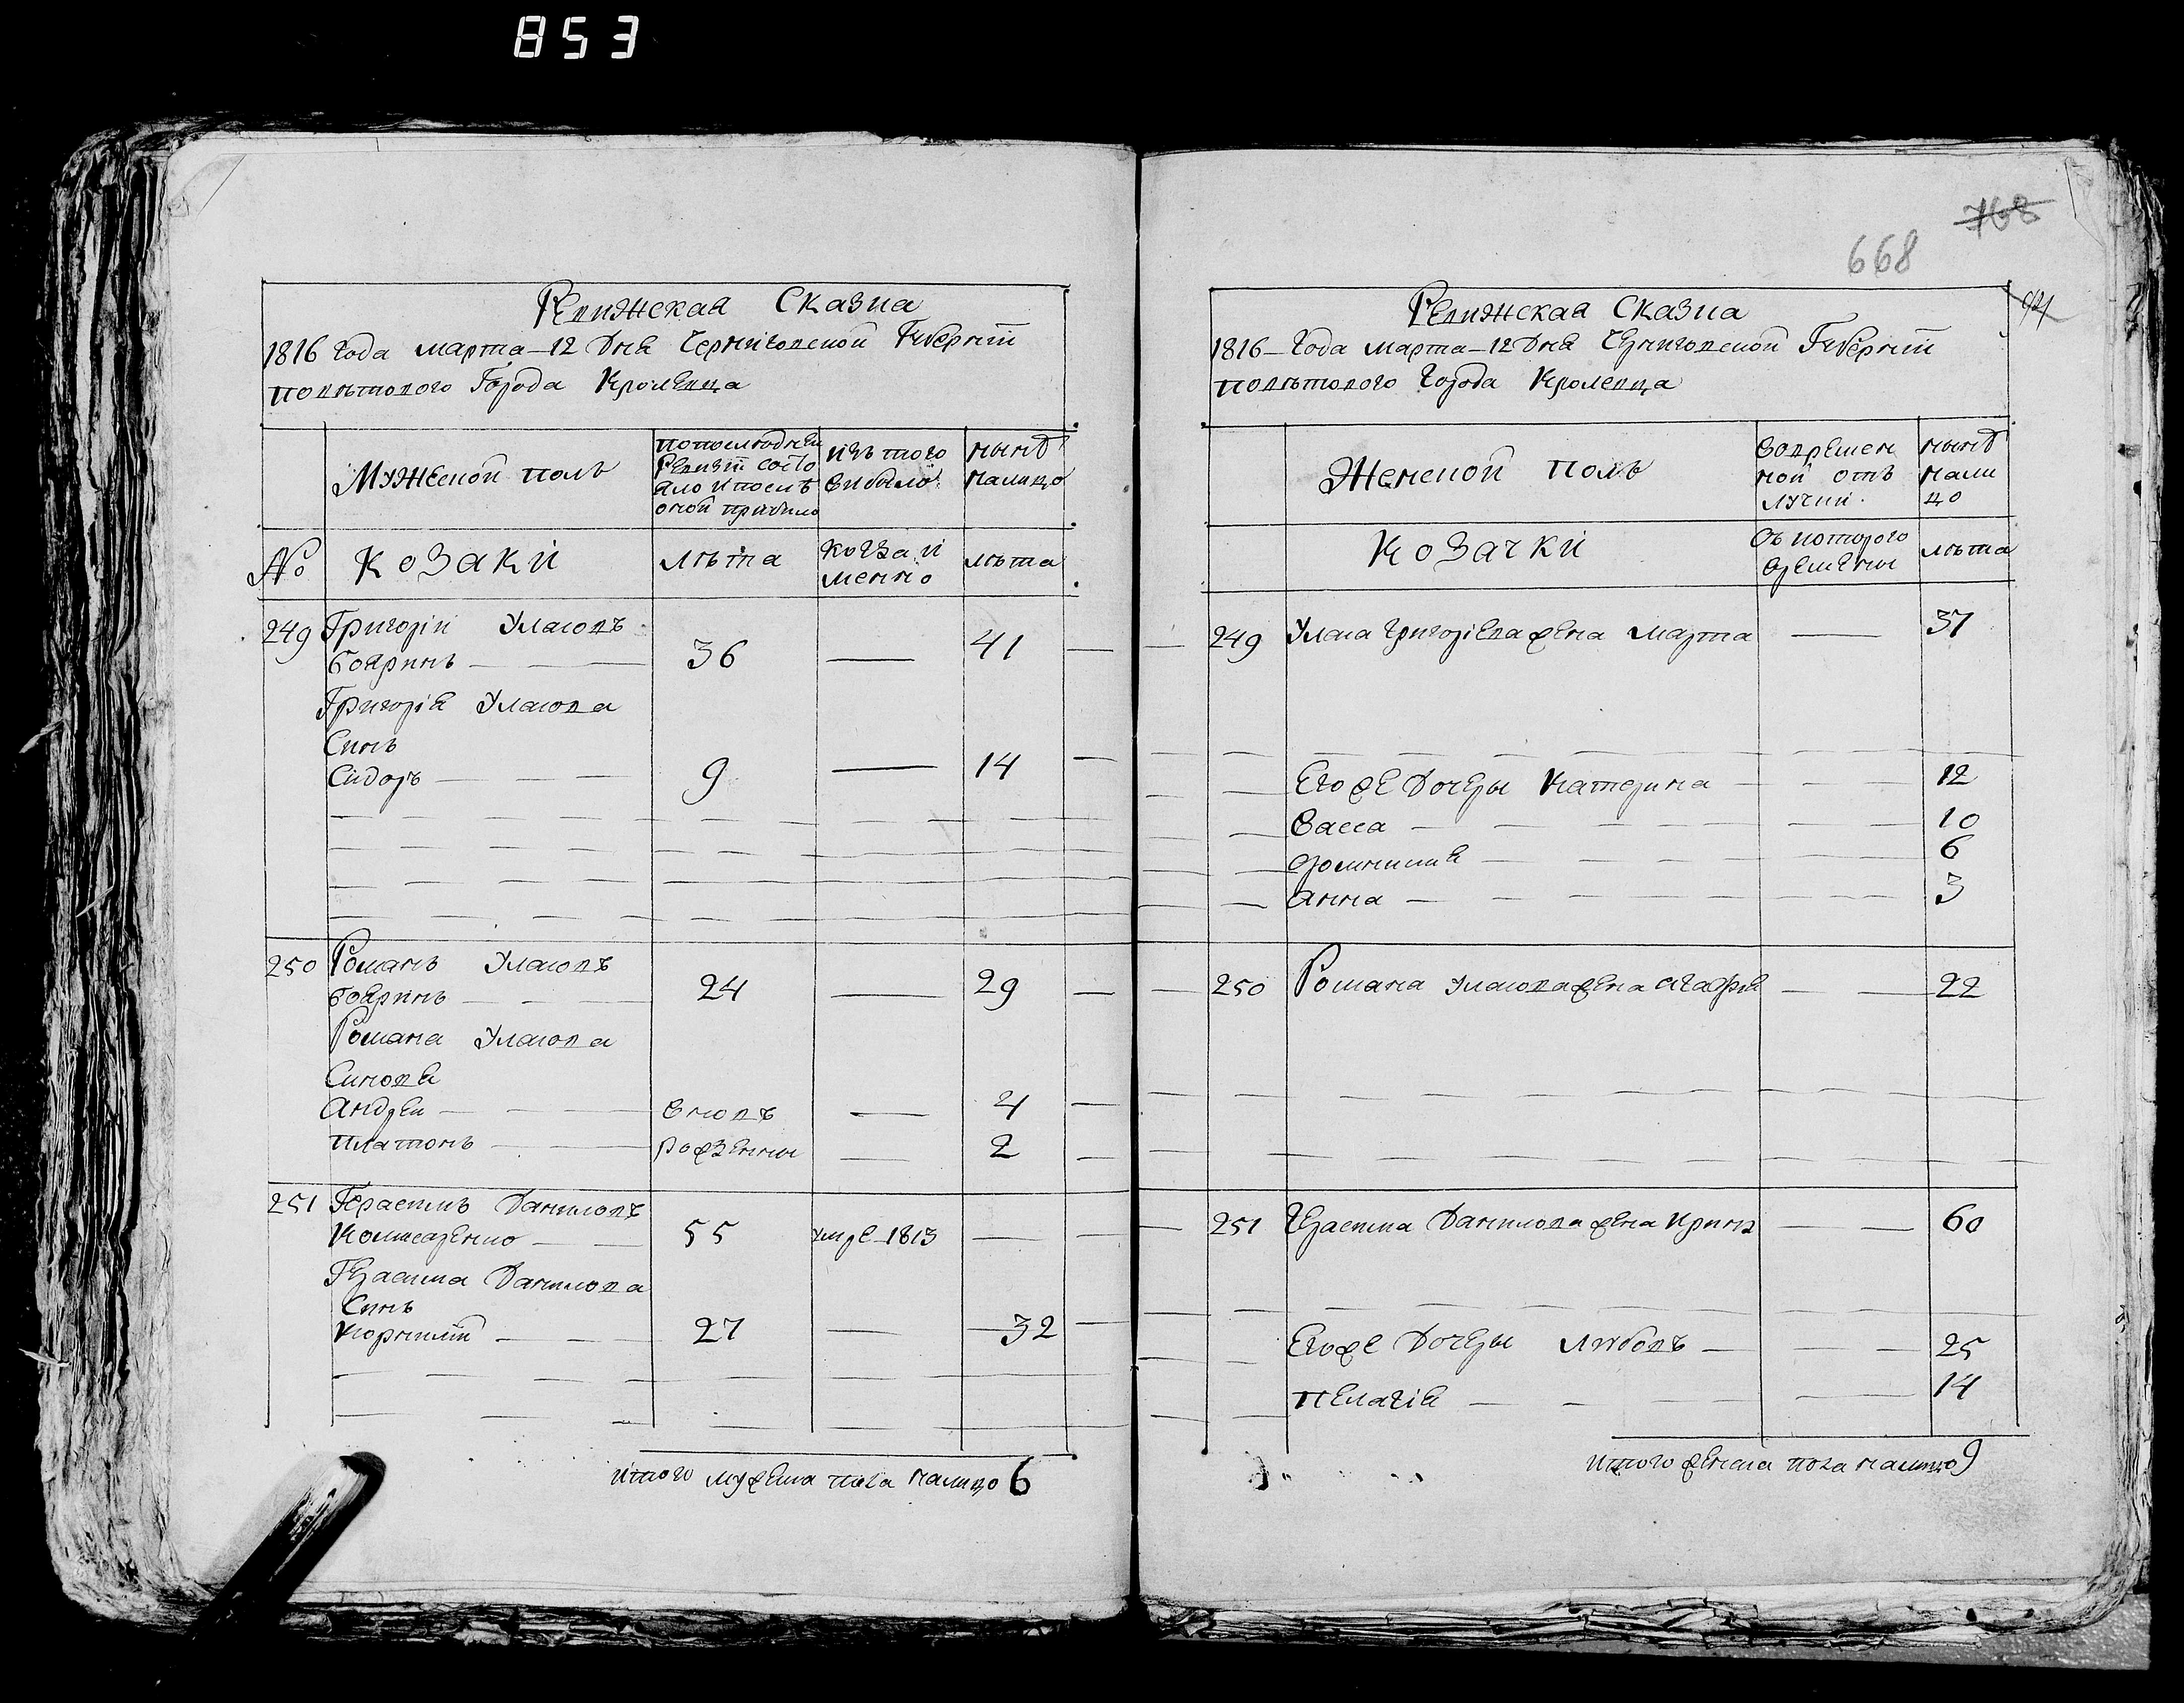 853
768
668
Ревижская Сказка
1816 Года марта 12 Дня Черниговской Губернии
поветового Города Кролевца
Мужеской полъ
попоследней
Ревизіи состо
яло и после
оной прибило
изъ того
выбыло
ныне
налицо
№
козаки
лѣта
когда и
менно
лѣта
249 Григорій Уласовъ
бояринъ 36 41
Григорія Уласова
Синъ
Сидоръ 9 14
250 Романъ Уласовъ
бояринъ 24 29
Романа Уласова
Синовя
Андрей вновъ 4
Платонъ рожденны 2
251 Герасимъ Даниловъ
Комисаренко 55 умре 1813
Герасима Данилова
Синъ
Корнилій 27 32
итого мужеска пола налицо 6
Ревижская Сказка
1816 Года марта 12 Дня Черниговской Губерніи
поветового Города Кролевца
Женской полъ
вовремен
ной отъ
лучки
ныне
нали
цо
козачки
Съ которого
времены
лѣта
249 Уласа Григоріева жена Марта 37
Его же Дочеры Катерина 12
Васса 10
6
Анна 3
250 Романа Уласова жена Агафія 22
251 Герасима Данилова жена Ирина 60
Его же Дочеры Любовъ 25
Пелагія 14
итого женска пола налицо 9